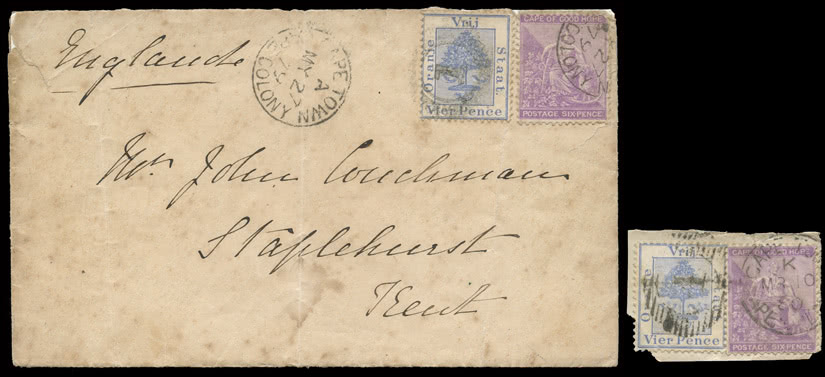 England
CAPE TOWN
A
MY 27
79
CAPE COLONY
Vrij
Oranje
Staat.
Vier Pence
CAPE OF GOOD HOPE
COLONY
POSTAGE SIX-PENCE
Mr. John Couchman
Staplehurst
Kent
Vrij
Vier Pence
CAPE OF GOOD HOPE
POSTAGE SIX-PENCE